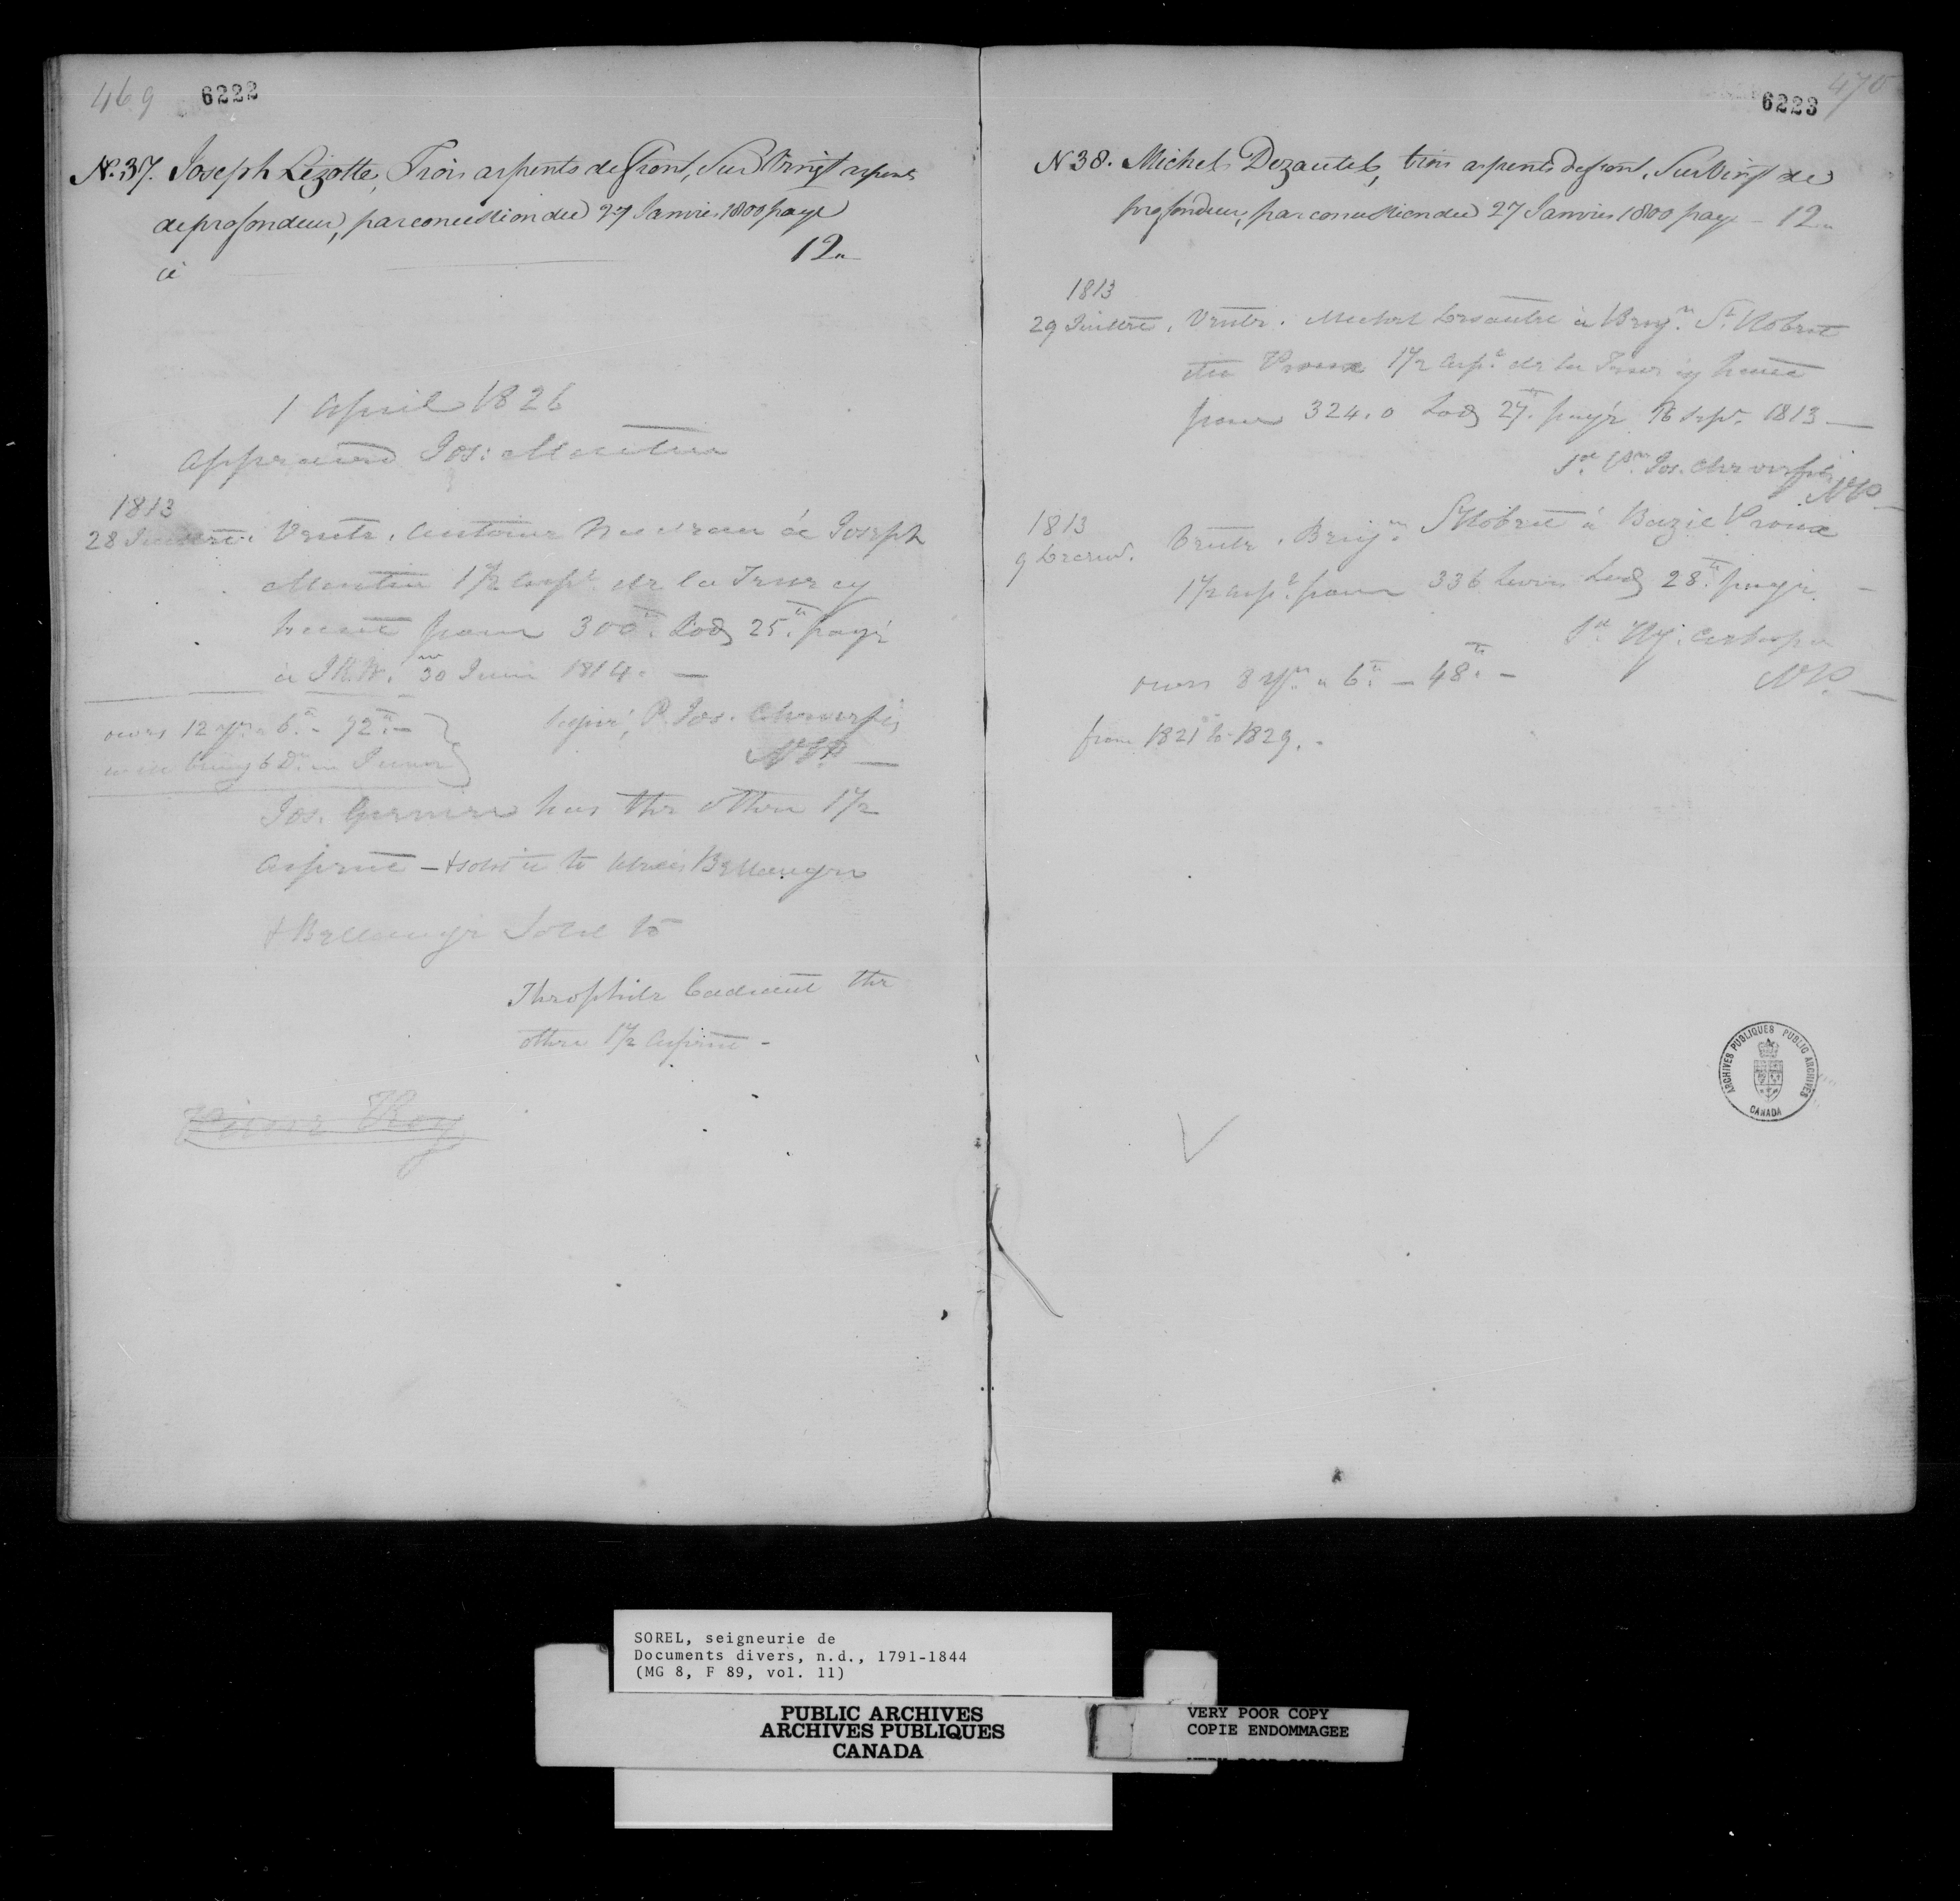 469 6222
No. 37. Joseph Lizotte, Trois arpents de front, Sur Vingt arpents
de profondeur, par concession du 27 Janvier 1800 paye
ci 12"
1 April 1826
appeared Jos: Martin
1813
28 Juillet. Vente. Antoine à Joseph
Martin 1 1/2 arpt. de la Terre cy
haut pour 300tt. Lods 25tt. payé
à 30 Juin 1814. —
owes 12 yrs. a 6tt. - 72tt. —
will bring 6 Drs. in
Signé, P. Jos. Chevrefils
N.P. —
Jos. has the other 1 1/2
Arpent — & sold it to Bellanger
& Bellanger Sold to
Theophile Cadieu the
other 1 1/2 Arpent -
Roy
470
6223
N 38. Michel Dezautels, trois arpents de front, Sur Vingt de
profondeur, par concession du 27 Janvier 1800 paye — 12"
1813
29 Juillet. Vente. Michel Desautel à Benj.n St. Robert
Proux 1 1/2 arpt. de la Terre cy haut
pour 324.0 Lods 27tt. payé 16 Sept. 1813 —
Jos. Chevrefils
N.P. —
1813
9 Decem. Vente. Benj.n St Robert à Bazie Proux
1 1/2 arpt. pour 336 Livres Lods 28tt. payé. —
N.P. —
owes 8 yrs. a 6tt. — 48tt. —
from 1821 to 1829. -
ARCHIVES PUBLIQUES PUBLIC ARCHIVES
CANADA
SOREL, seigneurie de
Documents divers, n.d., 1791-1844
(MG 8, F 89, vol. 11)
PUBLIC ARCHIVES
ARCHIVES PUBLIQUES
CANADA
VERY POOR COPY
COPIE ENDOMMAGEE
VERY POOR COPY